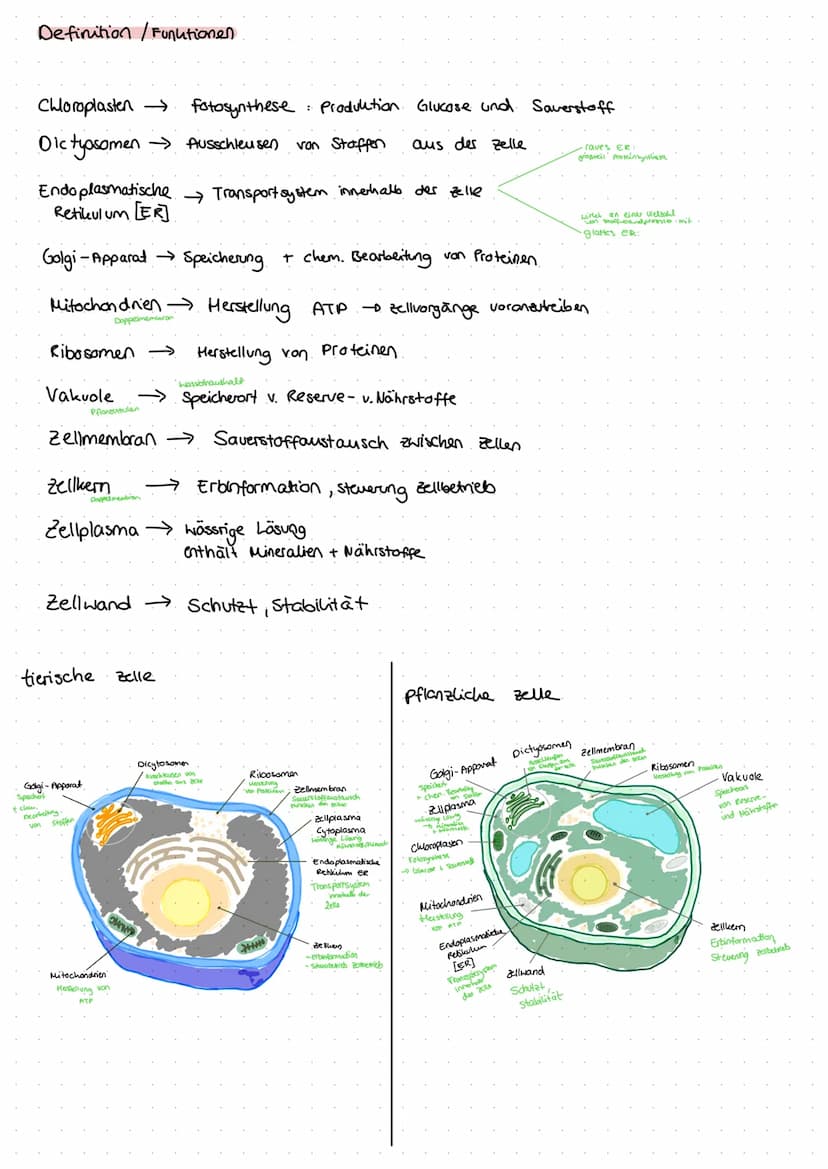 Definition / Funktionen
Chloroplasten → Fotosynthese : Produktion Glucose und Sauerstoff
Dictyosomen → Ausschleusen von Stoffen aus der Zelle
raues ER:
Proteinsynthese
Endoplasmatische → Transportsystem innerhalb der Zelle
Retikulum [ER]
wirkt an einer Vielzahl
von mit
glattes ER:
Golgi-Apparat → Speicherung + chem. Bearbeitung von Proteinen
Mitochondrien → Herstellung ATP → Zellvorgänge voranzutreiben
Doppelmembran
Ribosomen → Herstellung von Proteinen
Wasserhaushalt
Vakuole → Speicherort v. Reserve- u. Nährstoffe
Pflanzenzellen
Zellmembran → Sauerstoffaustausch zwischen Zellen
Zellkern → Erbinformation, Steuerung Zellbetrieb
Doppelmembran
Zellplasma → wässrige Lösung
enthält Mineralien + Nährstoffe
Zellwand → Schutzt, Stabilität
tierische Zelle
Dicytosomen
Ausschleusen von
Stoffen aus Zelle
Golgi-Apparat
Speichert
+ chem.
Bearbeitung
von Stoffen
Ribosomen
Herstellung
von Proteinen
Zellmembran
Sauerstoffaustausch
zwischen den Zellen
Zellplasma
Cytoplasma
wässrige Lösung
Endoplasmatische
Retikulum ER
Transportsystem
innerhalb der
Zelle
Zellkern
-Erbinformation
- Zellbetrieb
Mitochondrien
Herstellung von
ATP
pflanzliche Zelle
Dictyosomen
Ausschleusen
von Stoffen aus
der Zelle
Zellmembran
Sauerstoffaustausch
zwischen den Zellen
Golgi-Apparat
Speichert
+ chem Bearbeitung
von Stoffen
Ribosomen
Herstellung von Proteinen
Vakuole
Speicherort
von Reserve-
und Nährstoffen
Zellplasma
wässrige Lösung
Chloroplasten
Fotosynthese
→ Glucose & Sauerstoff
Mitochondrien
Herstellung
von ATP
Endoplasmatische
Retikulum
[ER]
Transportsystem
innerhalb
der Zelle
Zellwand
Schutzt,
Stabilität
Zellkern
Erbinformation
Steuerung Zellbetrieb